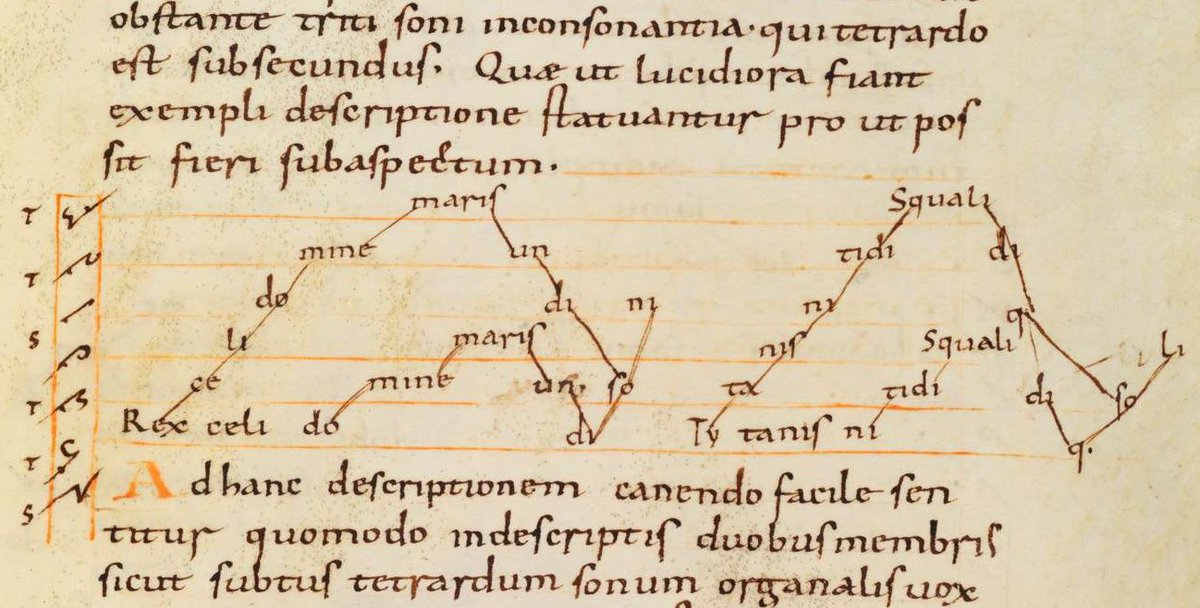 obstante triti soni inconsonantia· qui tetrardo
est subsecundus· Quæ ut lucidiora fiant
exempli descriptione statuantur pro ut pos
sit fieri sub aspectum·
T maris Squali
mine un tidi di
T
do di ni ni q
S li maris nis Squali li
ce mine un· so ta tidi di so
T
Rex celi do di Ty tanis ni q·
T
S
Ad hanc descriptionem canendo facile sen
titur quomodo in descriptis duobus membris
sicut subtus tetrardum sonum organalis vox